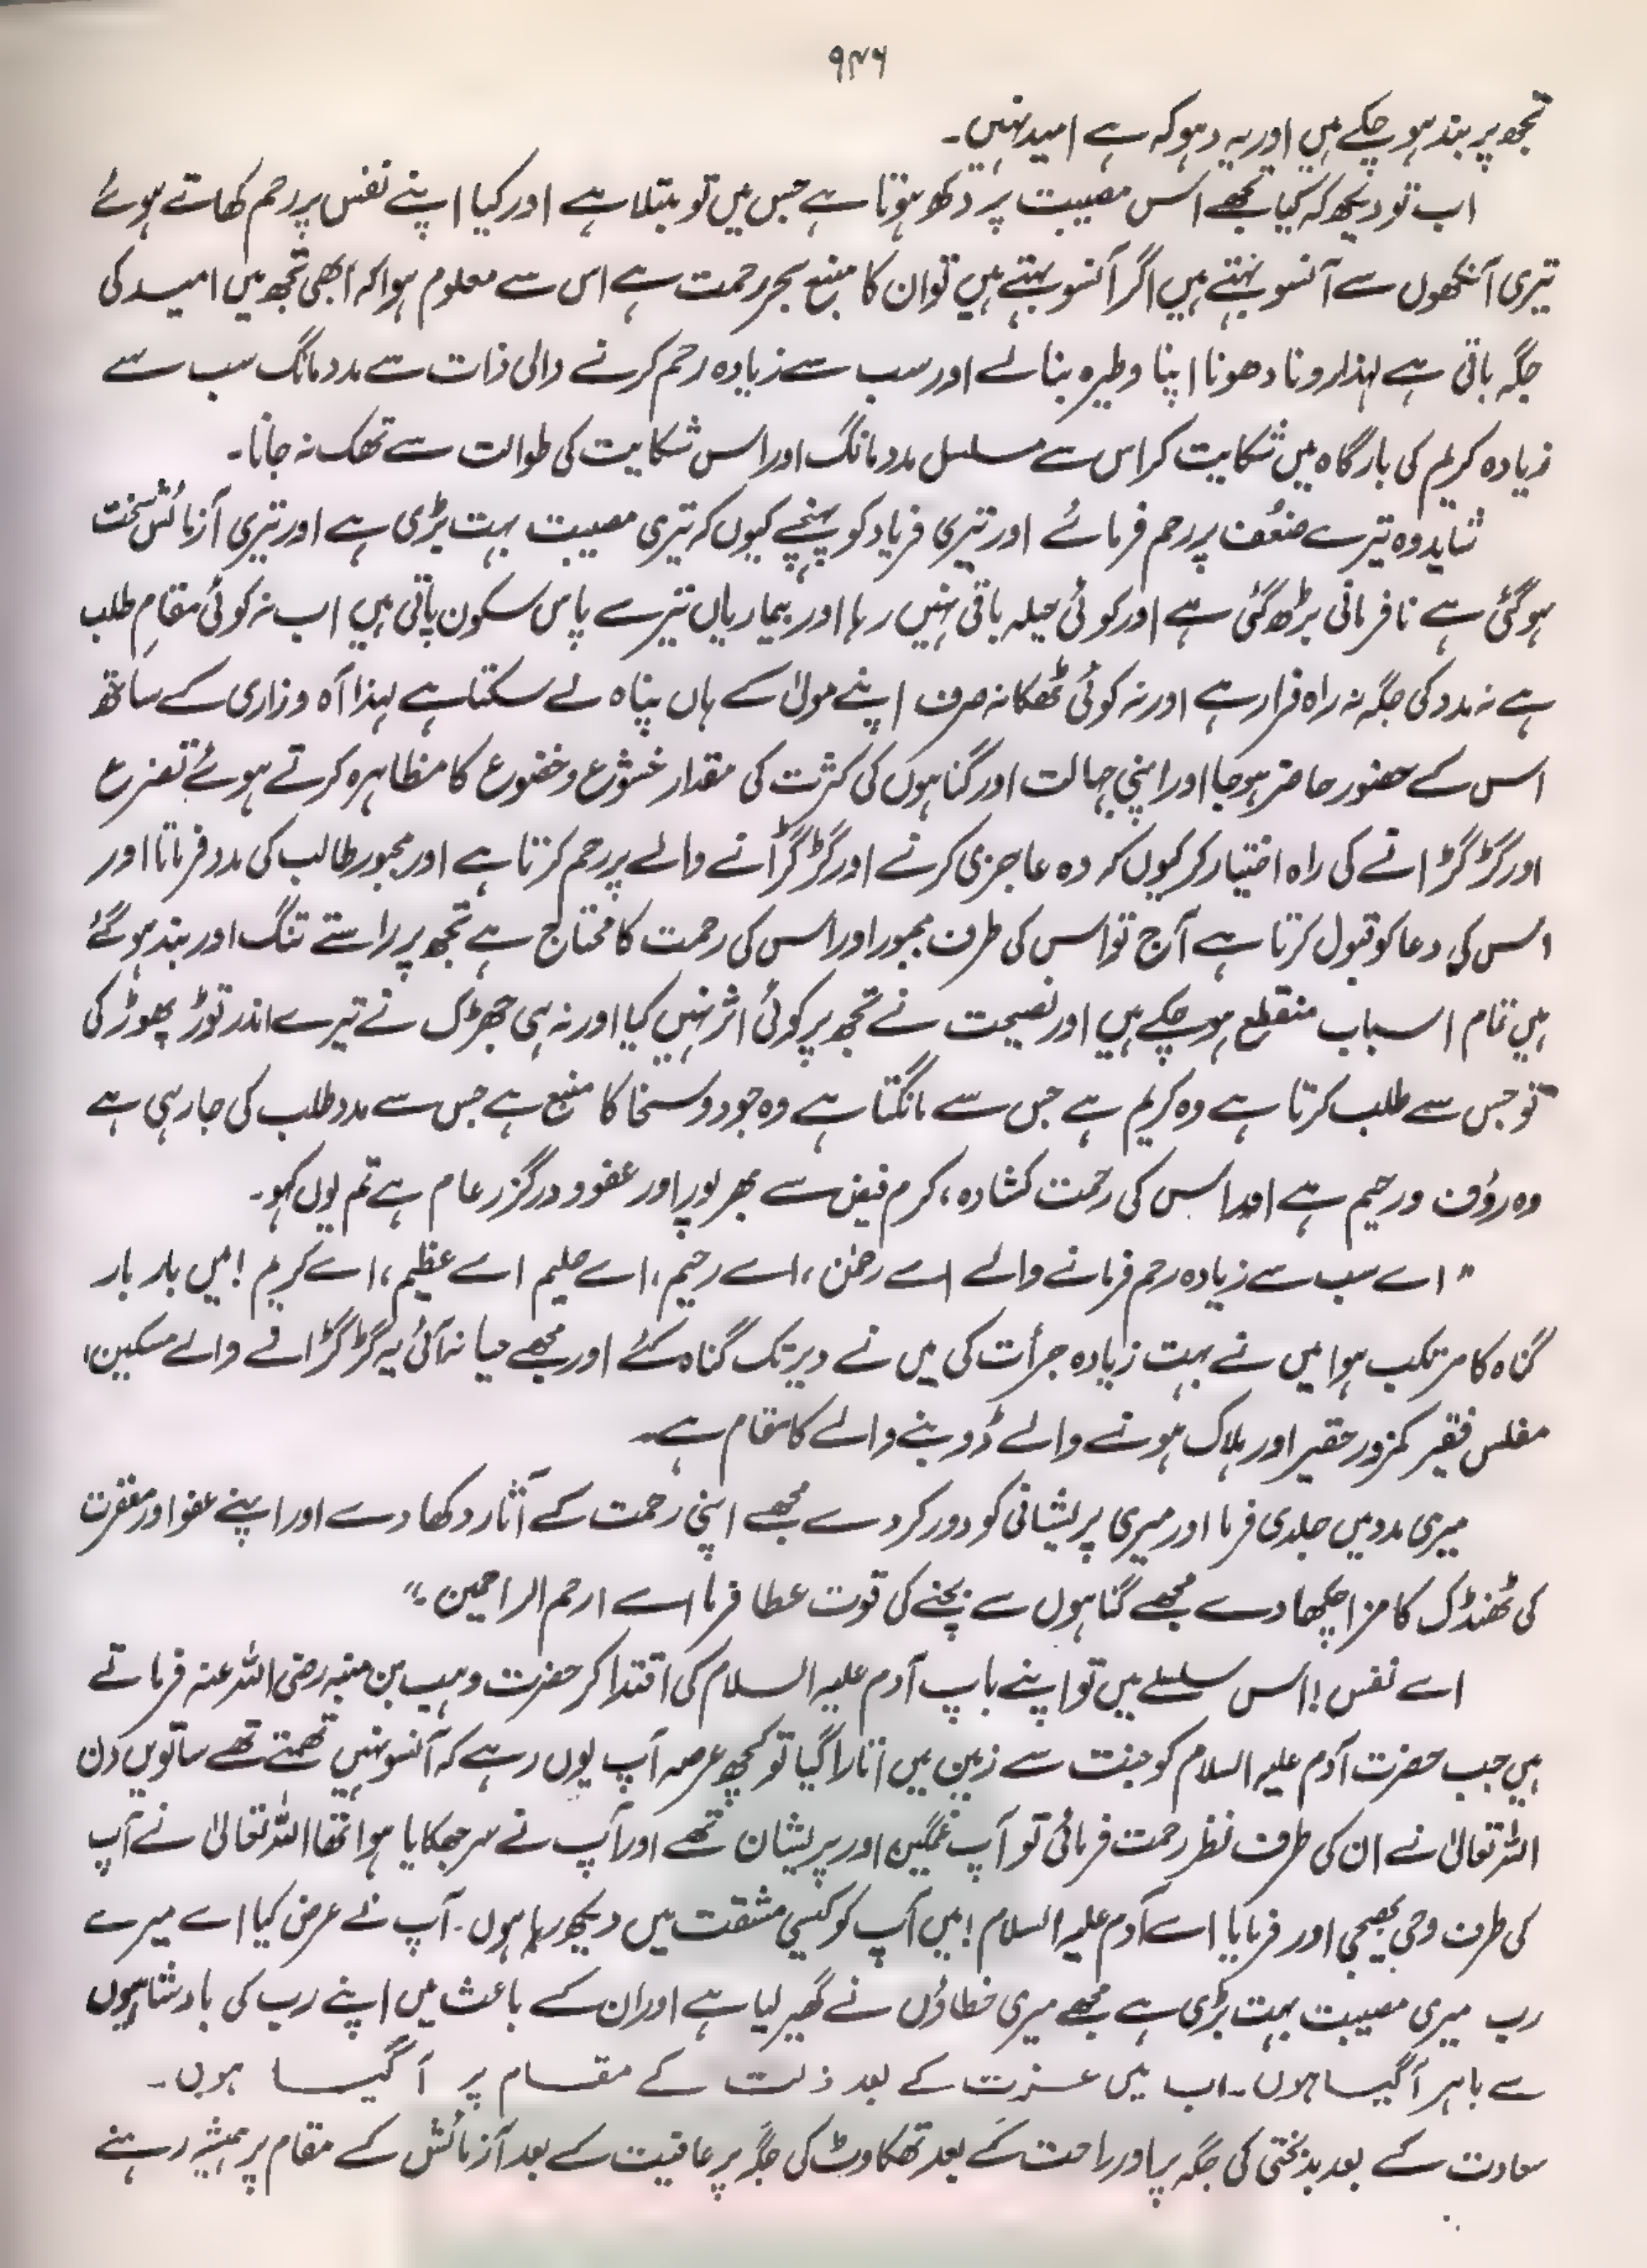 ۹۴۶
تجھ پر بند ہو چکے ہیں اور یہ دہوکہ ہے امید نہیں۔
اب تو دیکھ کہ کیا تجھے اس مصیبت پر دکھ ہوتا ہے جس میں تو مبتلا ہے اور کیا اپنے نفس پر رحم کھاتے ہوئے
تیری آنکھوں سے آنسو بہتے ہیں اگر آنسو بہتے ہیں تو ان کا منبع بحر رحمت ہے اس سے معلوم ہوا کہ ابھی تجھ میں امید کی
جگہ باقی ہے لہذا رونا دھونا اپنا وطیرہ بنالے اور سب سے زیادہ رحم کرنے والی ذات سے مدد مانگ سب سے
زیادہ کریم کی بارگاہ میں شکایت کر اس سے مسلسل مدد مانگ اور اس شکایت کی طوالت سے تھک نہ جانا۔
شاید وہ تیرے ضعف پر رحم فرمائے اور تیری فریاد کو پہنچے کیوں کہ تیری مصیبت بہت بڑی ہے اور تیری آزمائش سخت
ہو گئی ہے نافرمانی بڑھ گئی ہے اور کوئی حیلہ باقی نہیں رہا اور بیماریاں تیرے پاس سکون پاتی ہیں اب نہ کوئی مقامِ طلب
ہے نہ مدد کی جگہ نہ راہ فرار ہے اور نہ کوئی ٹھکانہ صرف اپنے مولیٰ کے ہاں پناہ لے سکتا ہے لہذا آہ و زاری کے ساتھ
اس کے حضور حاضر ہو جا اور اپنی جہالت اور گناہوں کی کثرت کی مقدار خشوع و خضوع کا مظاہرہ کرتے ہوئے تضرع
اور گڑگڑانے کی راہ اختیار کر کیوں کہ وہ عاجزی کرنے اور گڑگڑانے والے پر رحم کرتا ہے اور مجبور طالب کی مدد فرماتا اور
اس کی دعا کو قبول کرتا ہے آج تو اس کی طرف مجبور اور اس کی رحمت کا محتاج ہے تجھ پر راستے تنگ اور بند ہو گئے
ہیں تمام اسباب منقطع ہو چکے ہیں اور نصیحت نے تجھ پر کوئی اثر نہیں کیا اور نہ ہی جھڑک نے تیرے اندر توڑ پھوڑ کی
تو جس سے طلب کرتا ہے وہ کریم ہے جس سے مانگتا ہے وہ جود و سخا کا منبع ہے جس سے مدد طلب کی جارہی ہے
وہ رؤف ورحیم ہے اور اس کی رحمت کشادہ، کرم فیض سے بھرپور اور عفو و درگزر عام ہے تم یوں کہو۔
"اے سب سے زیادہ رحم فرمانے والے اے رحمٰن، اے رحیم، اے حلیم اے عظیم، اے کریم! میں بار بار
گناہ کا مرتکب ہوا میں نے بہت زیادہ جرأت کی میں نے دیر تک گناہ کئے اور مجھے حیا نہ آئی یہ گڑگڑانے والے مسکین،
مفلس فقیر کمزور حقیر اور ہلاک ہونے والے ڈوبنے والے کا مقام ہے۔
میری مدد میں جلدی فرما اور میری پریشانی کو دور کر دے مجھے اپنی رحمت کے آثار دکھا دے اور اپنے عفو اور مغفرت
کی ٹھنڈک کا مزا چکھا دے مجھے گناہوں سے بچنے کی قوت عطا فرما اے ارحم الراحمین۔"
اے نفس! اس سلسلے میں تو اپنے باپ آدم علیہ السلام کی اقتدا کر حضرت وہب بن منبہ رضی اللہ عنہ فرماتے
ہیں جب حضرت آدم علیہ السلام کو جنت سے زمین میں اتارا گیا تو کچھ عرصہ آپ یوں رہے کہ آنسو نہیں تھمتے تھے ساتویں دن
اللہ تعالیٰ نے ان کی طرف نظر رحمت فرمائی تو آپ غمگین اور پریشان تھے اور آپ نے سر جھکایا ہوا تھا اللہ تعالیٰ نے آپ
کی طرف وحی بھیجی اور فرمایا اے آدم علیہ السلام! میں آپ کو کیسی مشقت میں دیکھ رہا ہوں۔ آپ نے عرض کیا اے میرے
رب میری مصیبت بہت بڑی ہے مجھے میری خطاؤں نے گھیر لیا ہے اور ان کے باعث میں اپنے رب کی بادشاہوں
سے باہر آگیا ہوں۔ اب میں عزت کے بعد ذلت کے مقام پر آگیا ہوں۔
سعادت کے بعد بدبختی کی جگہ پر اور راحت کے بعد تھکاوٹ کی جگہ پر عافیت کے بعد آزمائش کے مقام پر ہمیشہ رہنے